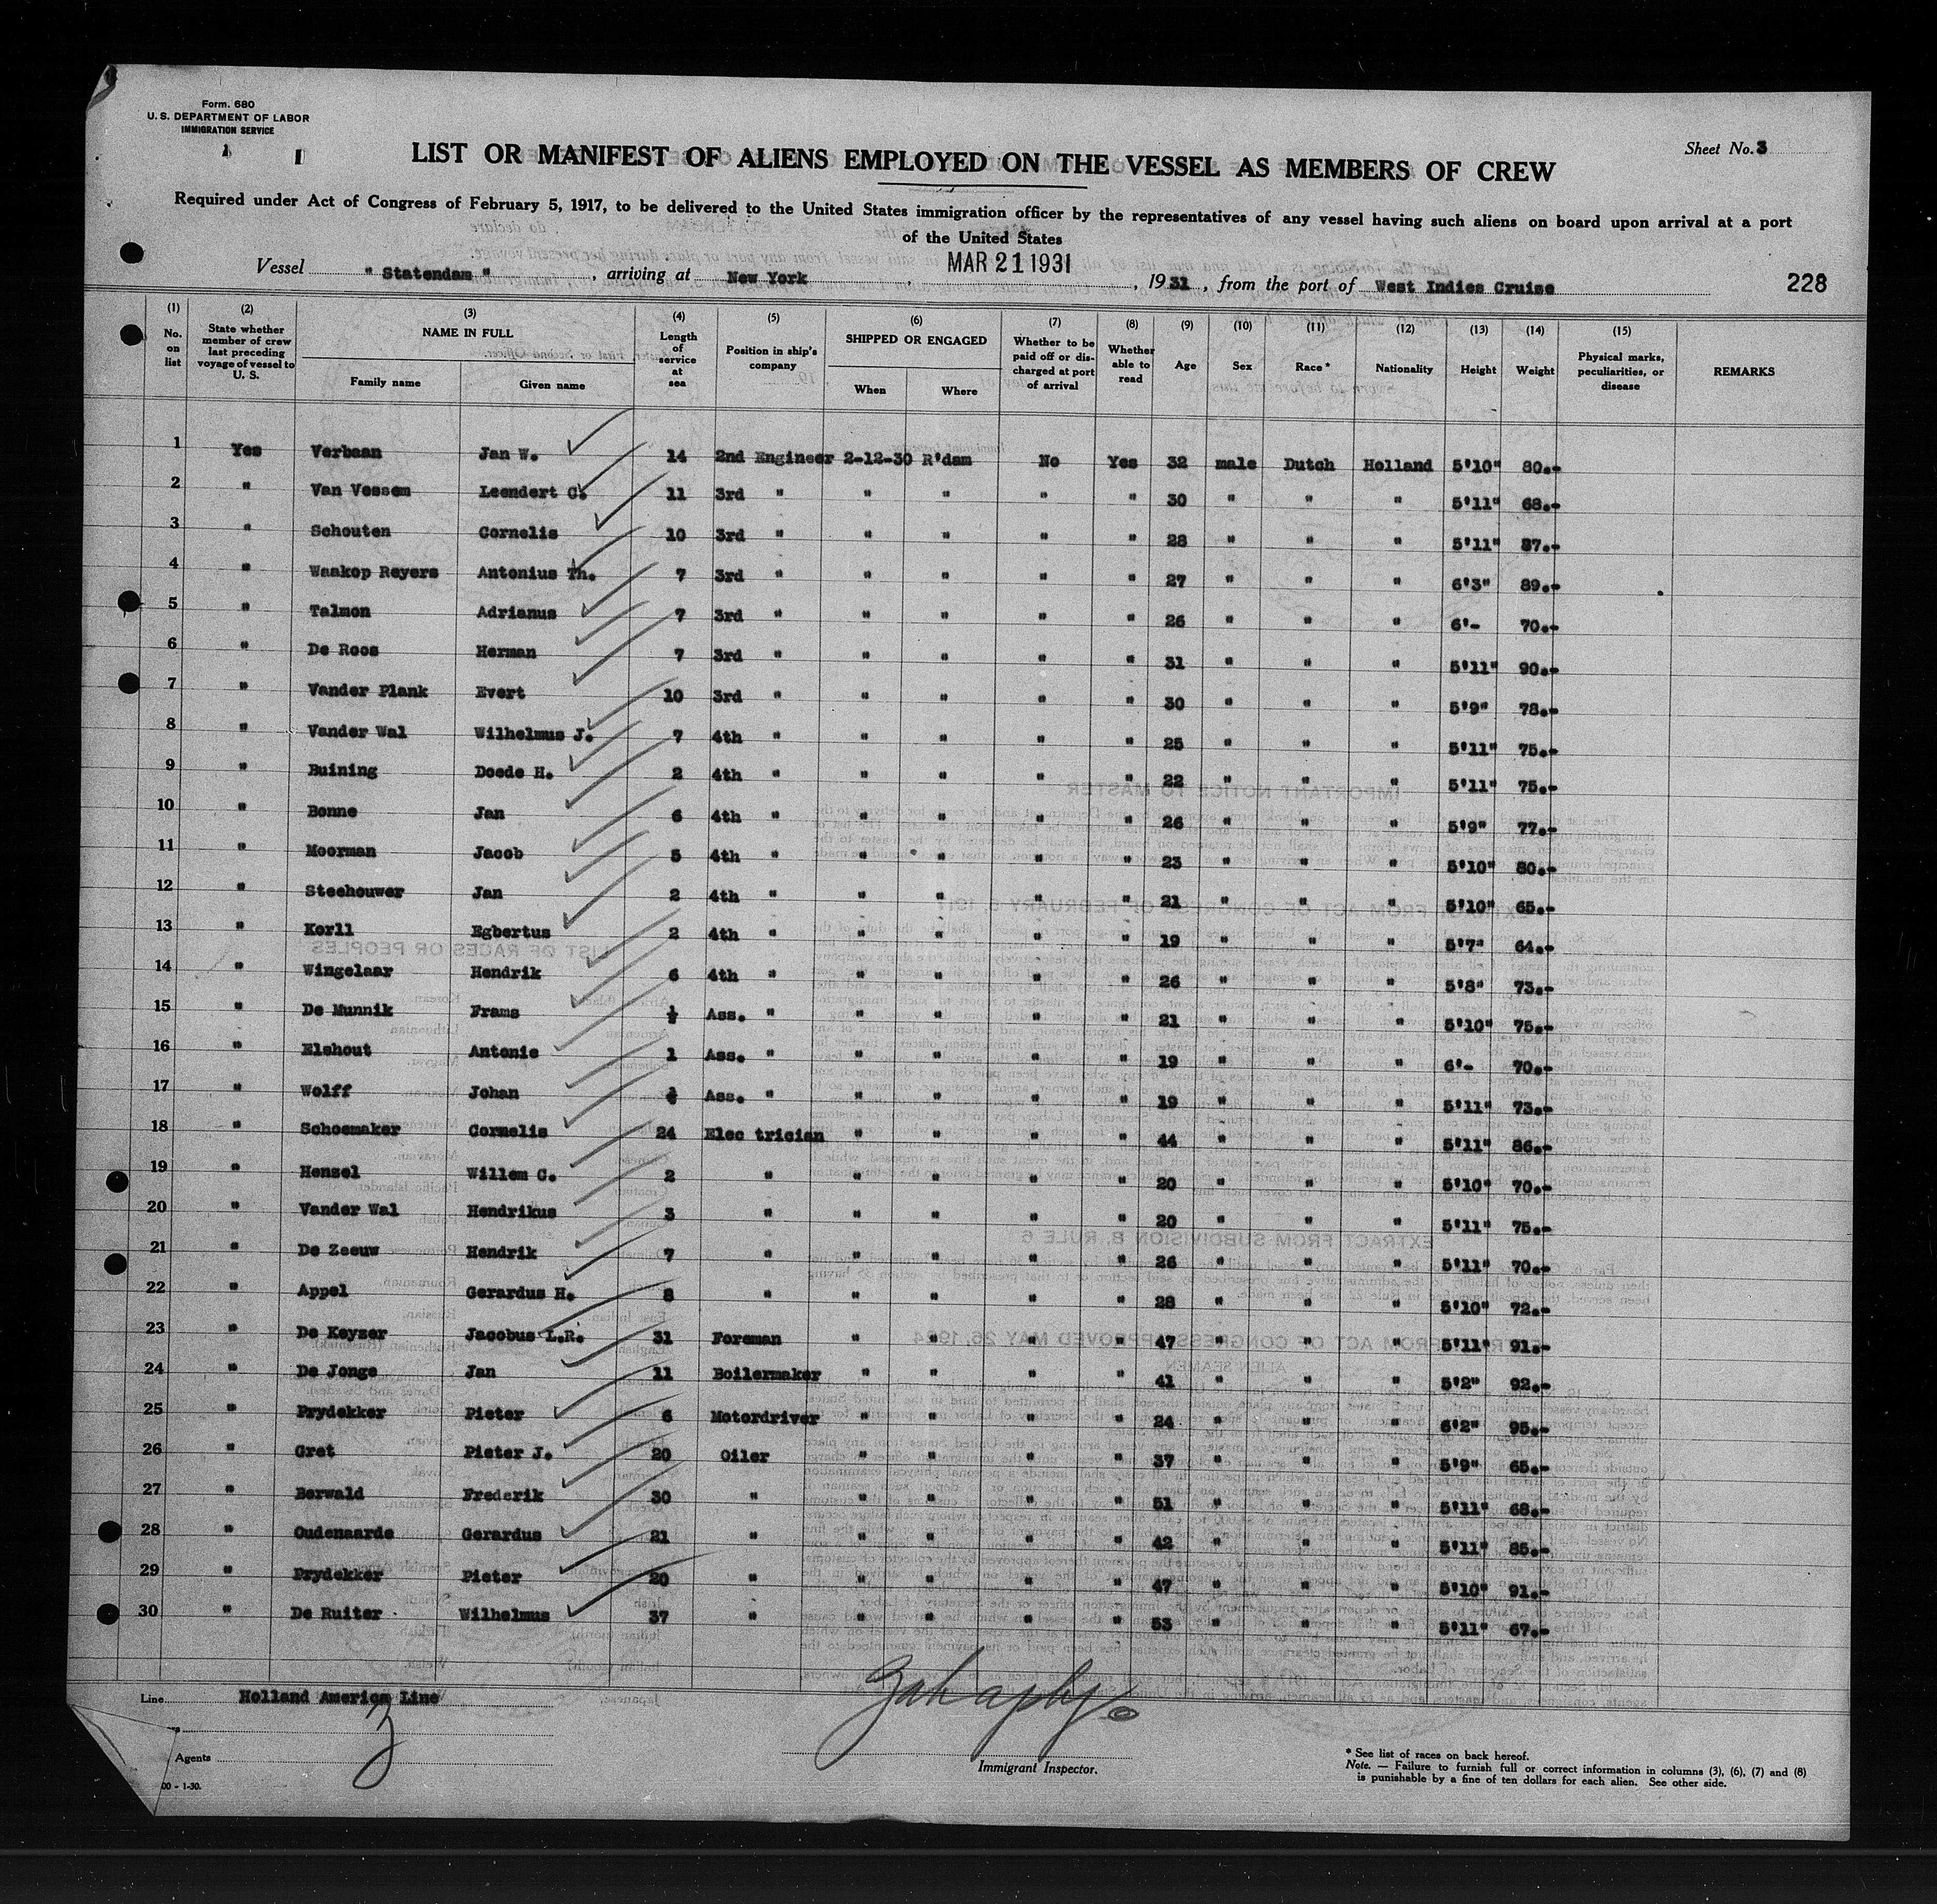 Form. 680
U. S. DEPARTMENT OF LABOR
IMMIGRATION SERVICE
Sheet No. 3
LIST OR MANIFEST OF ALIENS EMPLOYED ON THE VESSEL AS MEMBERS OF CREW
Required under Act of Congress of February 5, 1917, to be delivered to the United States immigration officer by the representatives of any vessel having such aliens on board upon arrival at a port
of the United States
Vessel " Statendam " , arriving at New York , MAR 21 1931 , 1931 , from the port of West Indies Cruise 228
(1) No. on list (2) State whether member of crew last preceding voyage of vessel to U. S. (3) NAME IN FULL Family name Given name (4) Length of service at sea (5) Position in ship's company (6) SHIPPED OR ENGAGED When Where (7) Whether to be paid off or discharged at port of arrival (8) Whether able to read (9) Age (10) Sex (11) Race * (12) Nationality (13) Height (14) Weight (15) Physical marks, peculiarities, or disease REMARKS
1 Yes Verbaan Jan W. 14 2nd Engineer 2-12-30 R'dam No Yes 32 male Dutch Holland 5'10" 80.-
2 " Van Vessem Leendert C. 11 3rd " " " " " 30 " " " 5'11" 68.-
3 " Schouten Cornelis 10 3rd " " " " " 28 " " " 5'11" 87.-
4 " Waakop Reyers Antonius Th. 7 3rd " " " " " 27 " " " 6'3" 89.-
5 " Talmon Adrianus 7 3rd " " " " " 26 " " " 6'- 70.-
6 " De Roos Herman 7 3rd " " " " " 31 " " " 5'11" 90.-
7 " Vander Plank Evert 10 3rd " " " " " 30 " " " 5'9" 78.-
8 " Vander Wal Wilhelmus J. 7 4th " " " " " 25 " " " 5'11" 75.-
9 " Buining Doede H. 2 4th " " " " " 22 " " " 5'11" 75.-
10 " Bonne Jan 6 4th " " " " " 26 " " " 5'9" 77.-
11 " Moorman Jacob 5 4th " " " " " 23 " " " 5'10" 80.-
12 " Steehouwer Jan 2 4th " " " " " 21 " " " 5'10" 65.-
13 " Korll Egbertus 2 4th " " " " " 19 " " " 5'7" 64.-
14 " Wingelaar Hendrik 6 4th " " " " " 26 " " " 5'8" 73.-
15 " De Munnik Frans ½ Ass. " " " " " 21 " " " 5'10" 75.-
16 " Elshout Antonie 1 Ass. " " " " " 19 " " " 6'- 70.-
17 " Wolff Johan Ass. " " " " " 19 " " " 5'11" 73.-
18 " Schoemaker Cornelis 24 Elec trician " " " " 44 " " " 5'11" 86.-
19 " Henzel Willem C. 2 " " " " " 20 " " " 5'10" 70.-
20 " Vander Wal Hendrikus 3 " " " " " 20 " " " 5'11" 75.-
21 " De Zeeuw Hendrik 7 " " " " " 26 " " " 5'11" 70.-
22 " Appel Gerardus H. 8 " " " " " 28 " " " 5'10" 72.-
23 " De Keyzer Jacobus L.R. 31 Foreman " " " " 47 " " " 5'11" 91.-
24 " De Jonge Jan 11 Boilermaker " " " " 41 " " " 5'2" 92.-
25 " Prydekker Pieter 6 Motordriver " " " " 24 " " " 6'2" 95.-
26 " Gret Pieter J. 20 Oiler " " " " 37 " " " 5'9" 65.-
27 " Berwald Frederik 30 " " " " " 51 " " " 5'11" 68.-
28 " Oudenaarde Gerardus 21 " " " " " 42 " " " 5'11" 85.-
29 " Prydekker Pieter 20 " " " " " 47 " " " 5'10" 91.-
30 " De Ruiter Wilhelmus 37 " " " " " 53 " " " 5'11" 67.-
Line Holland America Line
Agents
00 - 1-30.
Immigrant Inspector.
* See list of races on back hereof.
Note. — Failure to furnish full or correct information in columns (3), (6), (7) and (8)
is punishable by a fine of ten dollars for each alien. See other side.